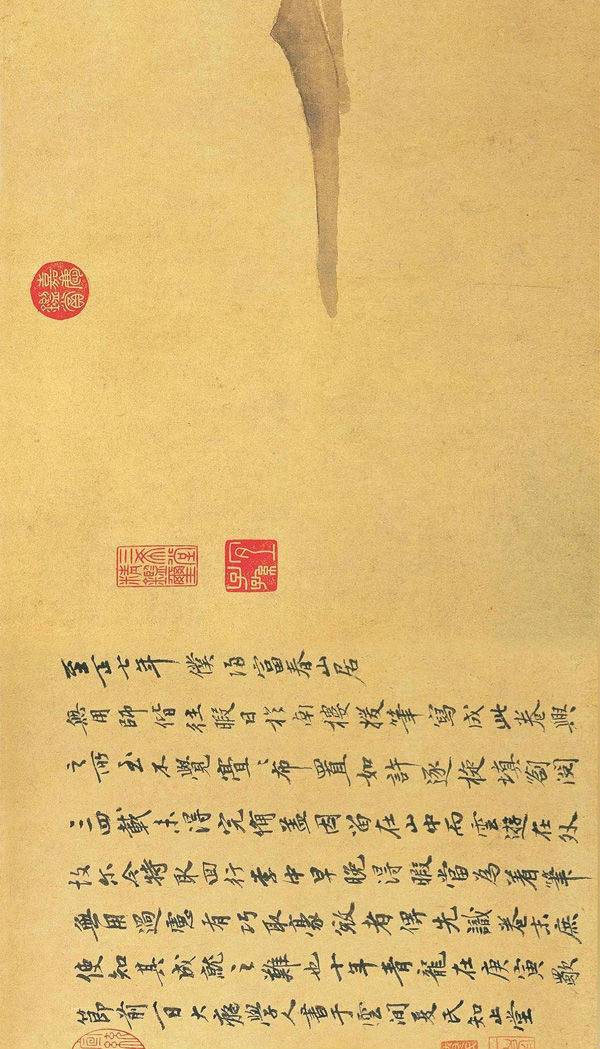 嘉慶鑑賞
三希堂精鑑璽
宜子孫
至正七年僕歸富春山居
無用師偕往暇日於南樓援筆寫成此卷興
之所至不覺亹〻布置如許逐旋填劄閱
三四載未得完備蓋因留在山中而雲遊在外
故尔今特取回行李中早晚得暇當為着筆
無用過慮有巧取豪敓者俾先識卷末庶
使知其成就之難也十年青龍在庚寅歜
節前一日大癡學人書于雲間夏氏知止堂